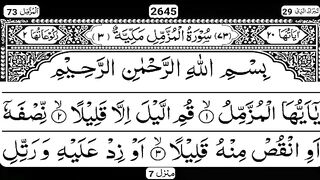 المزمل ٧٣ 2645 تبٰرك الذی ٢٩
اٰیَاتُهَا ٢٠ ﴿٧٣﴾ سُوۡرَةُ الۡمُزَّمِّلِ مَكِّیَّةٌ ﴿٣﴾ رُكُوۡعَاتُهَا ٢
بِسۡمِ اللهِ الرَّحۡمٰنِ الرَّحِیۡمِ
یٰۤاَیُّهَا الۡمُزَّمِّلُ ۙ﴿١﴾ قُمِ الَّیۡلَ اِلَّا قَلِیۡلًا ۙ﴿٢﴾ نِّصۡفَهٗۤ
اَوِ انۡقُصۡ مِنۡهُ قَلِیۡلًا ۙ﴿٣﴾ اَوۡ زِدۡ عَلَیۡهِ وَ رَتِّلِ
منزل ٧